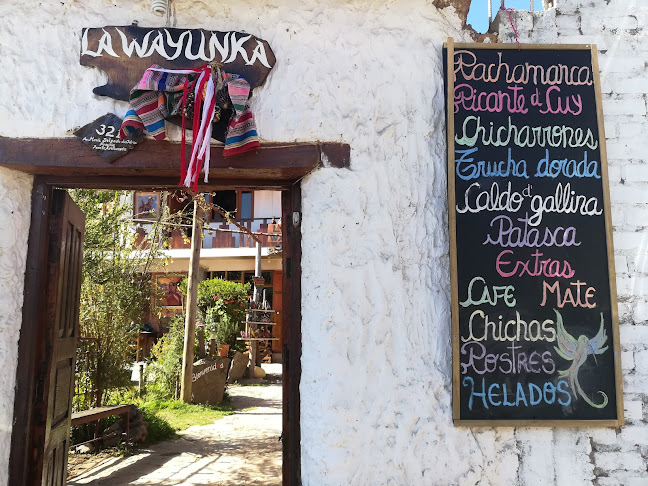 LA WAYUNKA
32
Pachamanca
Picante d' Cuy
Chicharrones
Trucha dorada
Caldo d' gallina
Patasca
Extras
Cafe Mate
Chichas
Postres
Helados
Bienvenidos